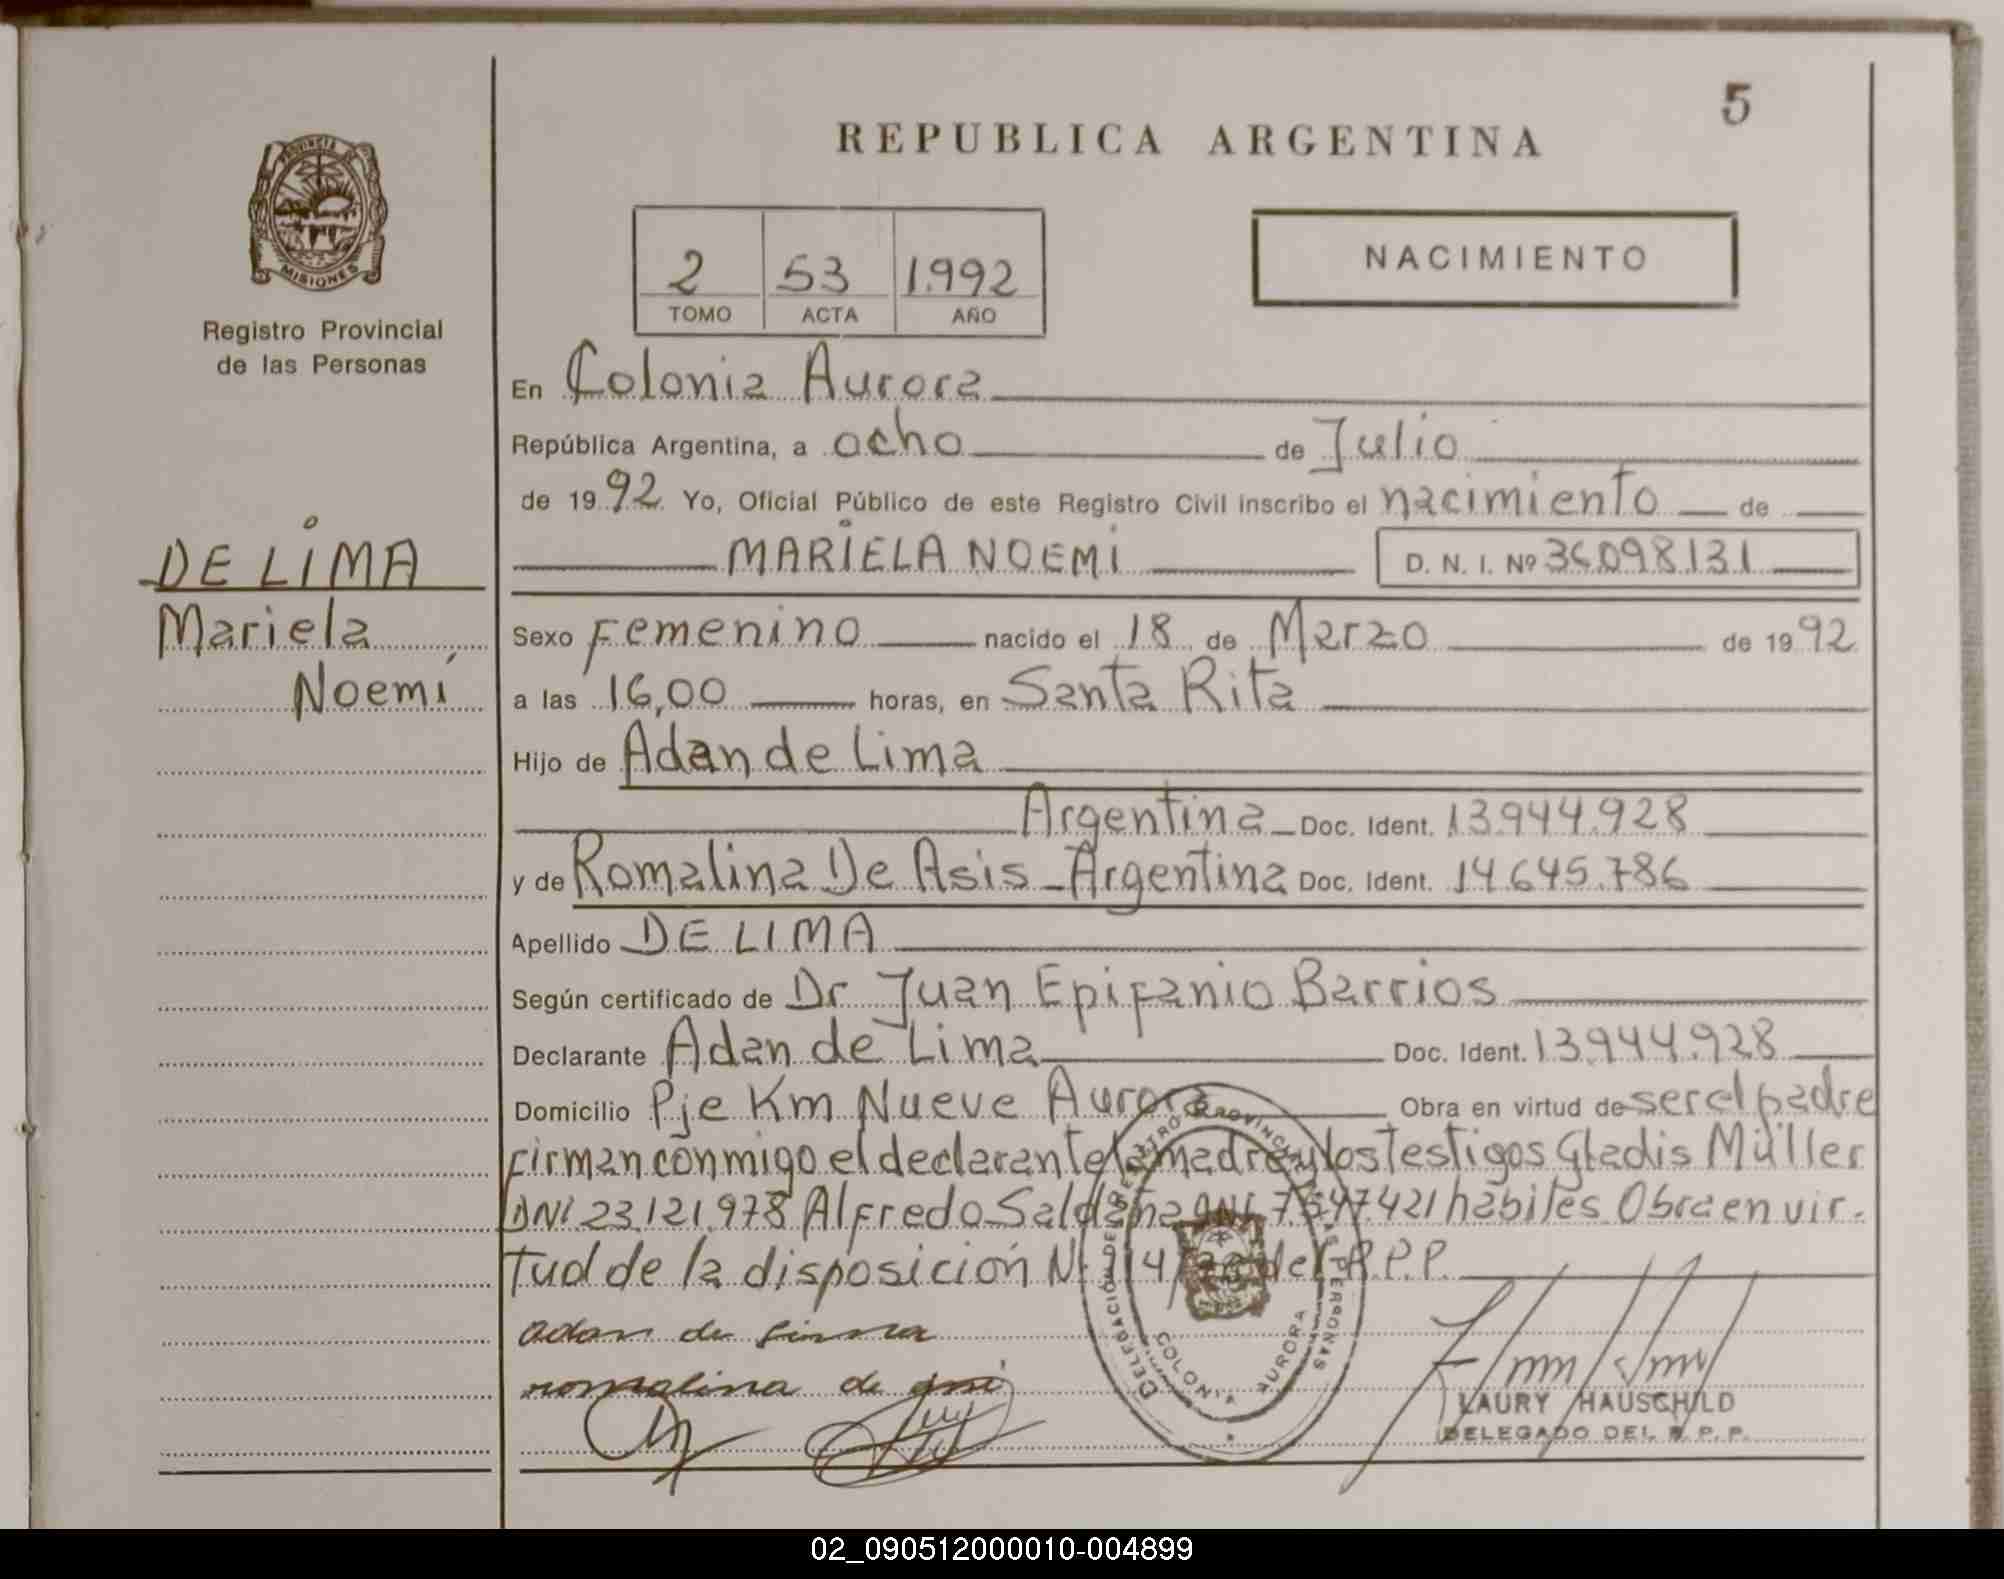 5
REPUBLICA ARGENTINA
PROVINCIA DE
MISIONES
Registro Provincial
de las Personas
2 53 1.992
TOMO ACTA AÑO
NACIMIENTO
En Colonia Aurora
República Argentina, a ocho de Julio
de 1992 Yo, Oficial Público de este Registro Civil inscribo el nacimiento de
MARIELA NOEMI D. N. I. Nº 36098131
DE LIMA
Mariela
Noemí
Sexo Femenino nacido el 18 de Marzo de 1992
a las 16,00 horas, en Santa Rita
Hijo de Adan de Lima
Argentina Doc. Ident. 13.944.928
y de Romalina De Asis - Argentina Doc. Ident. 14.645.786
Apellido DE LIMA
Según certificado de Dr Juan Epifanio Barrios
Declarante Adan de Lima Doc. Ident. 13.944.928
Domicilio Pje Km Nueve Aurora Obra en virtud de ser el padre
firman conmigo el declarante la madre y los testigos Gladis Müller
DNI 23.121.978 Alfredo Saldaña DNI 7.547.421 habiles Obra en vir-
tud de la disposición N: 114/ del R.P.P.
adan de lima
romalina de
DELEGACIÓN DEL REGISTRO PROVINCIAL DE LAS PERSONAS
COLONIA AURORA
LAURY HAUSCHILD
DELEGADO DEL R. P. P.
02_090512000010-004899